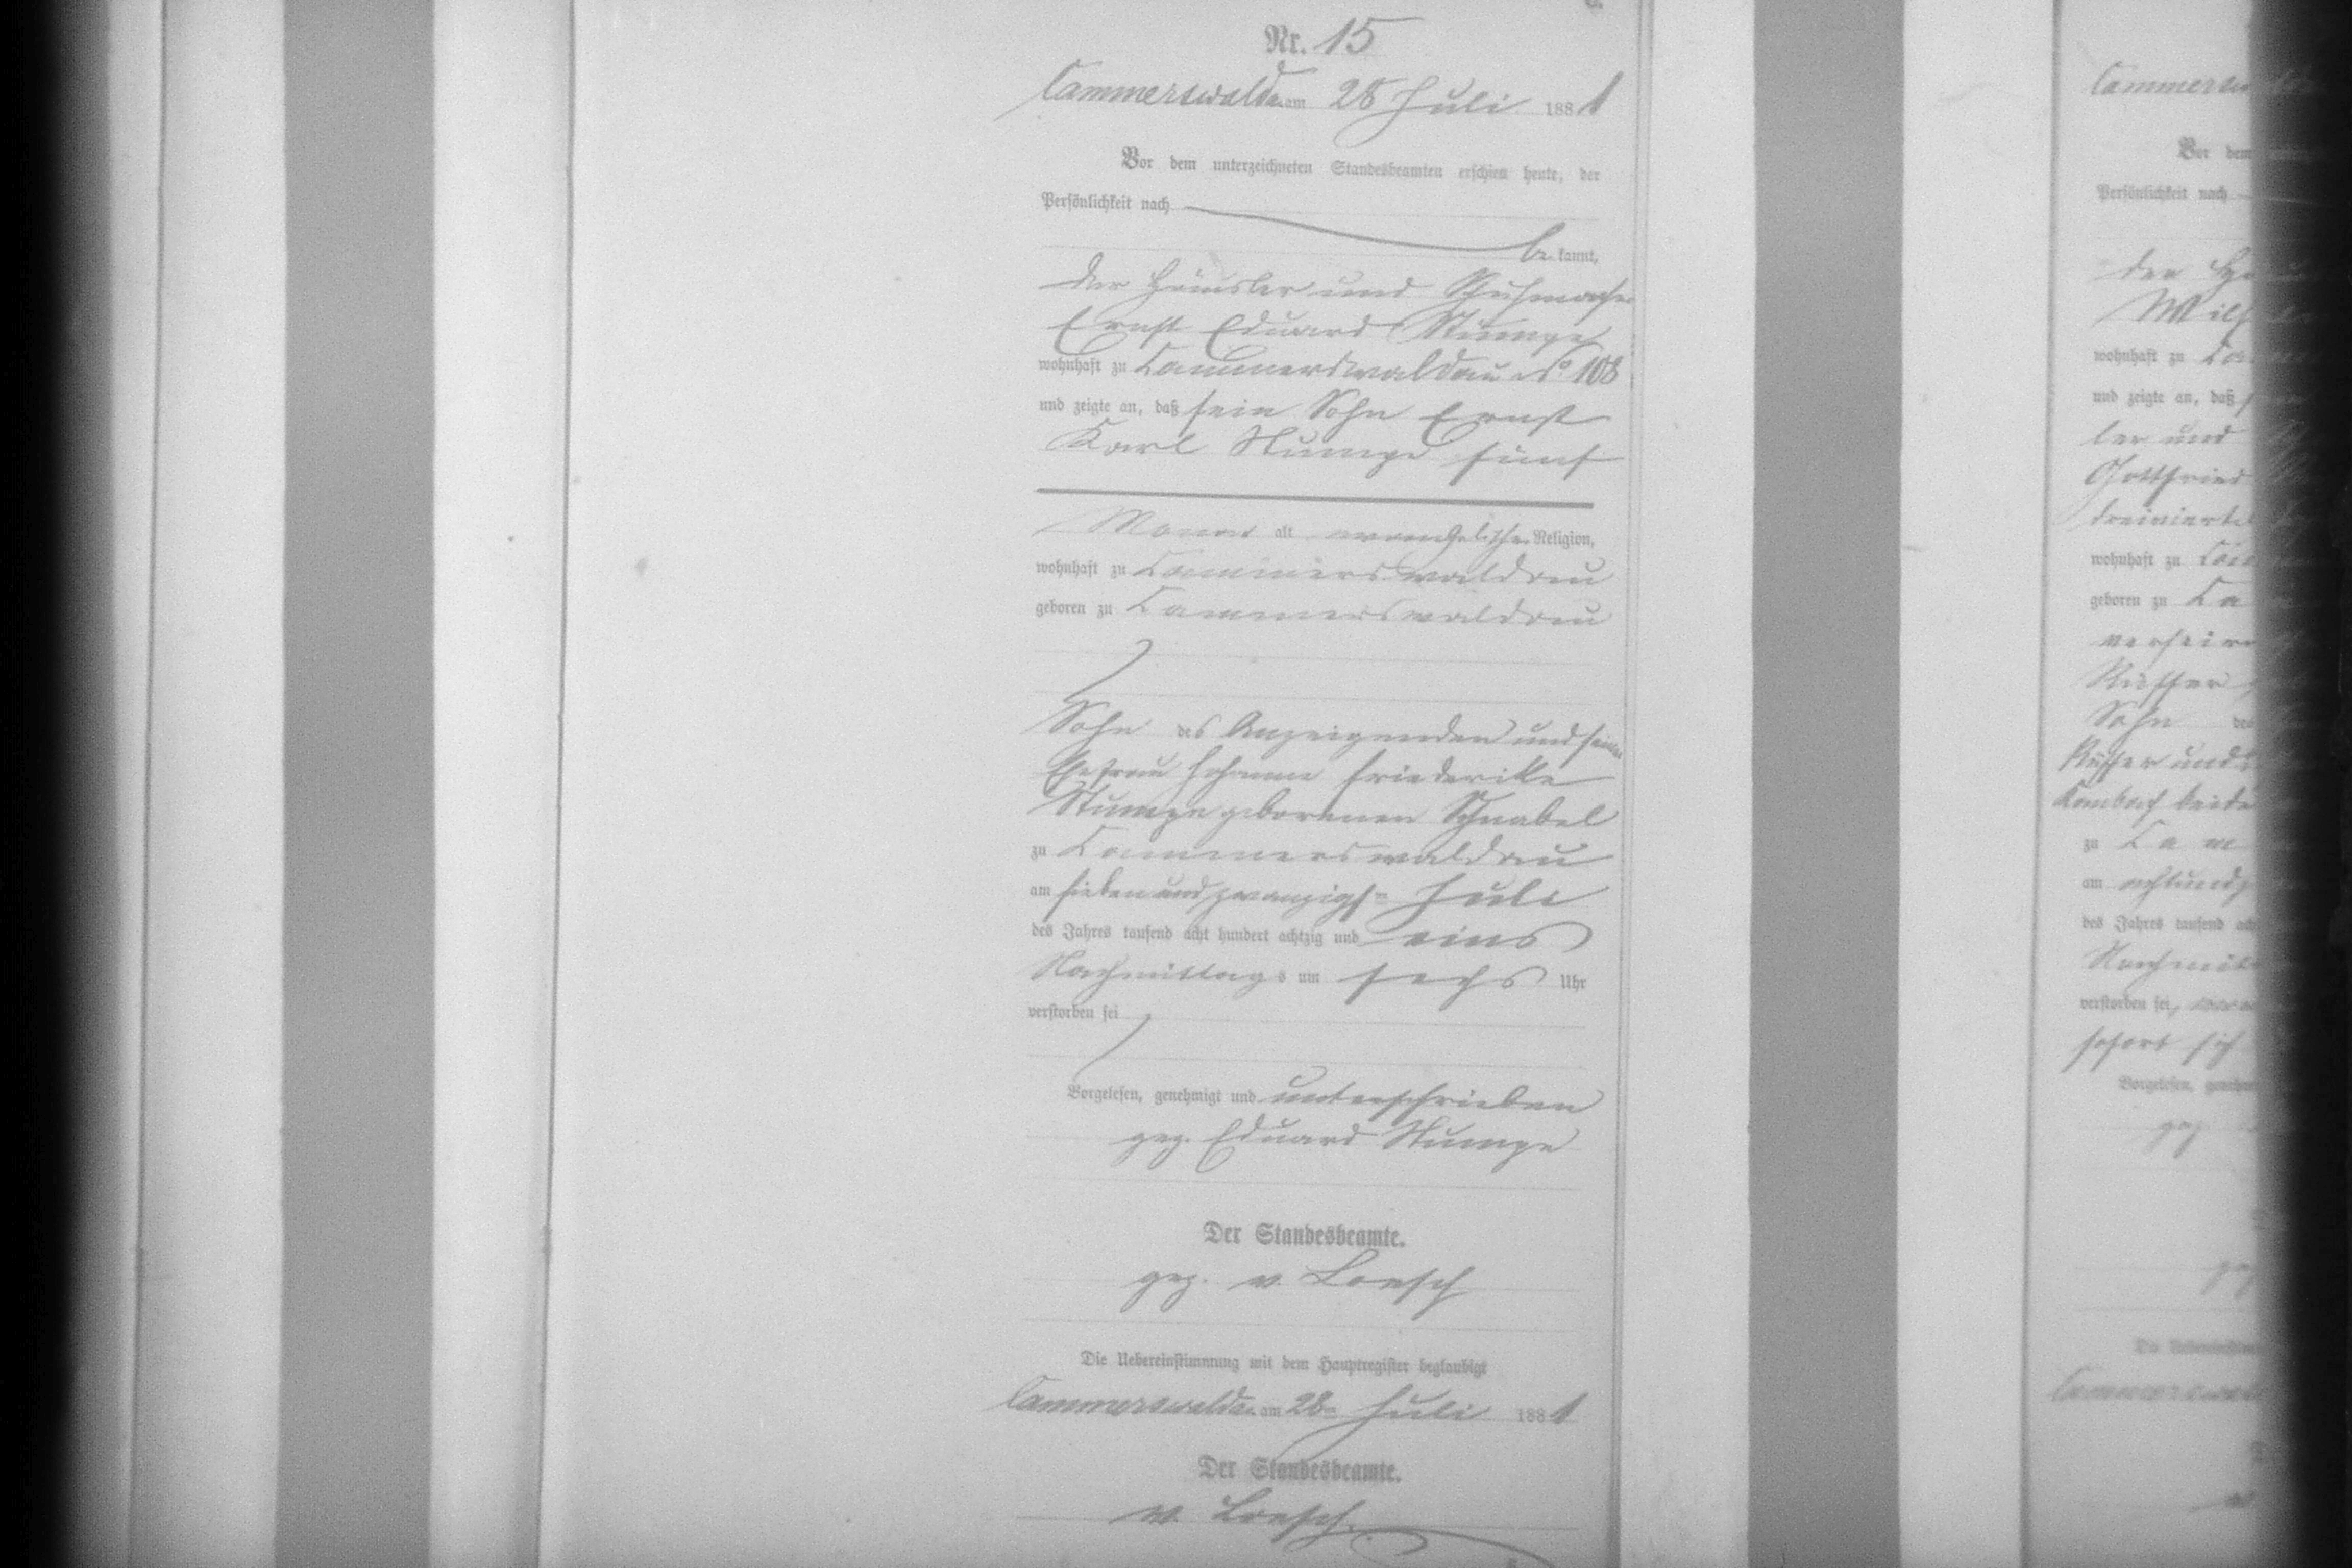 C.
Nr. 15
Cammerswaldau am 28 Juli 1881
Vor dem unterzeichneten Standesbeamten erschien heute, der
Persönlichkeit nach
be kannt,
der Häusler und Schuhmacher
Ernst Eduard Stumpe
wohnhaft zu Cammerswaldau No 108
und zeigte an, daß sein Sohn Ernst
Karl Stumpe fünf
Monat alt evangelischer Religion,
wohnhaft zu Cammerswaldau
geboren zu Cammerswaldau
Sohn des Anzeigenden und seiner
Ehefrau Johanne Friederike
Stumpe geborenen Schnabel
zu Cammerswaldau
am sieben und zwanzigsten Juli
des Jahres tausend acht hundert achtzig und eins
Nachmittags um sechs Uhr
verstorben sei
Vorgelesen, genehmigt und unterschrieben
gez. Eduard Stumpe
Der Standesbeamte.
gez. v. Loesch
Die Uebereinstimmung mit dem Hauptregister beglaubigt
Cammerswaldau am 28ten Juli 1881
Der Standesbeamte.
v. Loesch.
Vor dem
Persönlichkeit nach
der
wohnhaft zu
und zeigte an, daß
ler und
Gottfried
wohnhaft zu
geboren zu
Sohn des
Küffer und
beide
zu
am
des Jahres tausend
verstorben sei,
sofort sich
Vorgelesen,
gez